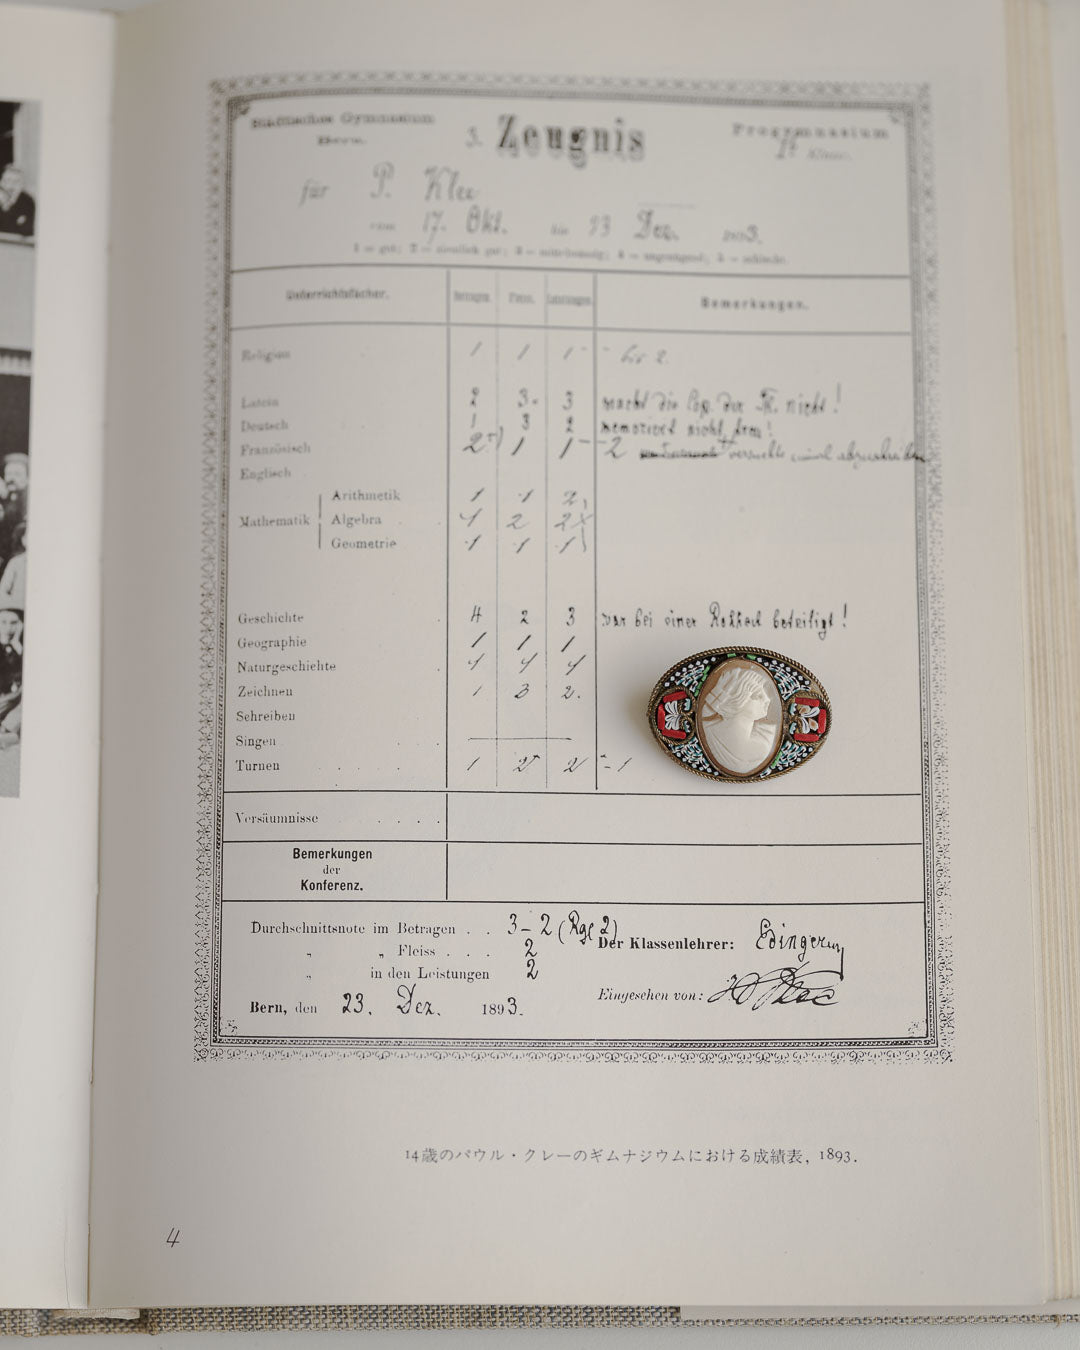 Städtisches Gymnasium
Bern.
3. Zeugnis
Progymnasium
Klasse.
für P. Klee
vom 17. Okt. bis 23 Dez. 1893.
1 = gut; 2 = ziemlich gut; 3 = mittelmässig; 4 = ungenügend; 5 = schlecht.
Unterrichtsfächer. Betragen. Fleiss. Leistungen. Bemerkungen.
Religion 1 1 1 - bis 2.
Latein 2 3 3 macht die nicht!
Deutsch 1 3 2 memoriert nicht!
Französisch 2 1 1 - 2 versuchte
Englisch
Arithmetik 1 1 2
Mathematik Algebra 1 2 2
Geometrie 1 1 1
Geschichte 4 2 3 war bei einer beteiligt!
Geographie 1 1 1
Naturgeschichte 1 1 1
Zeichnen 1 3 2.
Schreiben
Singen
Turnen 1 2 2 - 1
Versäumnisse
Bemerkungen
der
Konferenz.
Durchschnittsnote im Betragen . . 3-2 (Rgl 2)
„ „ Fleiss . . . 2
„ in den Leistungen 2
Der Klassenlehrer:
Eingesehen von:
Bern, den 23. Dez. 1893.
14歳のパウル・クレーのギムナジウムにおける成績表, 1893.
4